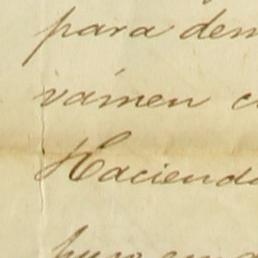 para dem
vámen c
Hacienda